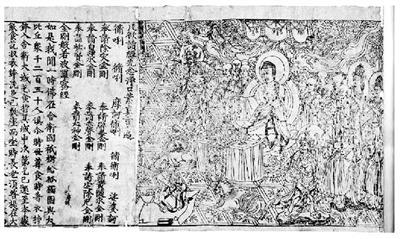 凡欲讀經先念淨口業真言一遍
脩唎 脩唎 摩訶脩唎 脩脩唎 娑婆訶
奉請除災金剛 奉請辟毒金剛 奉請黃隨求金剛
奉請白淨水金剛 奉請赤聲金剛 奉請定除災金剛
奉請紫賢金剛 奉請大神金剛
金剛般若波羅蜜經
如是我聞一時佛在舍衛國祇樹給孤獨園與大
比丘眾千二百五十人俱尒時世尊食時著衣持
鉢入舍衛大城乞食於其城中次第乞已還至本處
飯食訖收衣鉢洗足已敷座而坐時長老須菩提在